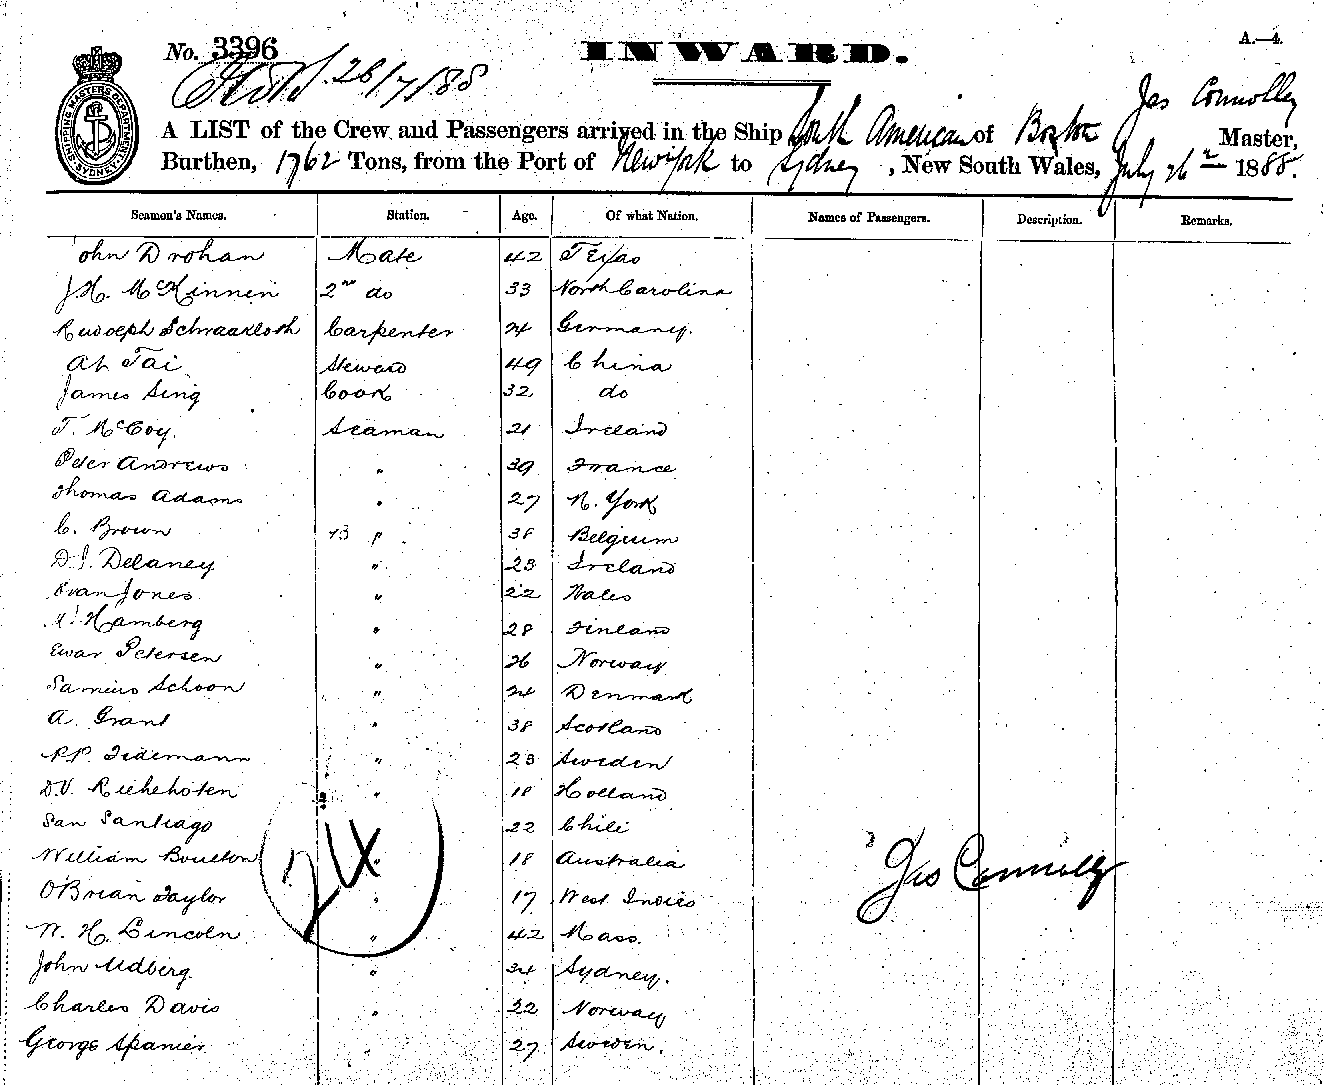 No. 3396
INWARD.
A.—4.
26/7/88
Jas Connolly
A LIST of the Crew and Passengers arrived in the Ship South American of Boston Master,
Burthen, 1762 Tons, from the Port of Newyork to Sydney, New South Wales, July 26 1888.
SHIPPING MASTERS DEPARTMENT SYDNEY
Seamen's Names. Station. Age. Of what Nation. Names of Passengers. Description. Remarks.
ohn Drohan Mate 42 Texas
J.H. McKinnen 2nd do 33 North Carolina
Rudolph Schwaarloth Carpenter 24 Germany.
Ah Tai Steward 49 China
James Sing Cook 32 do
T. McCoy. Seaman 21 Ireland
Peter Andrews " 39 France
Thomas Adams " 27 N. York
C. Brown " 38 Belgium
D.J. Delaney " 23 Ireland
Evan Jones " 22 Wales
Hamberg " 28 Finland
Ewar Petersen " 26 Norway
Schoon " 24 Denmark
A. Grant " 38 Scotland
P.P. Tidemann " 23 Sweden
D.V. Riehehoten " 18 Holland
San Santiago 22 Chili
William Boulton " 18 Australia
24
Jas Connolly
OBrian Taylor " 17 West Indies
W. H. Lincoln " 42 Mass.
John Udberg " 34 Sydney.
Charles Davis " 22 Norway
George Spanier " 27 Sweden.